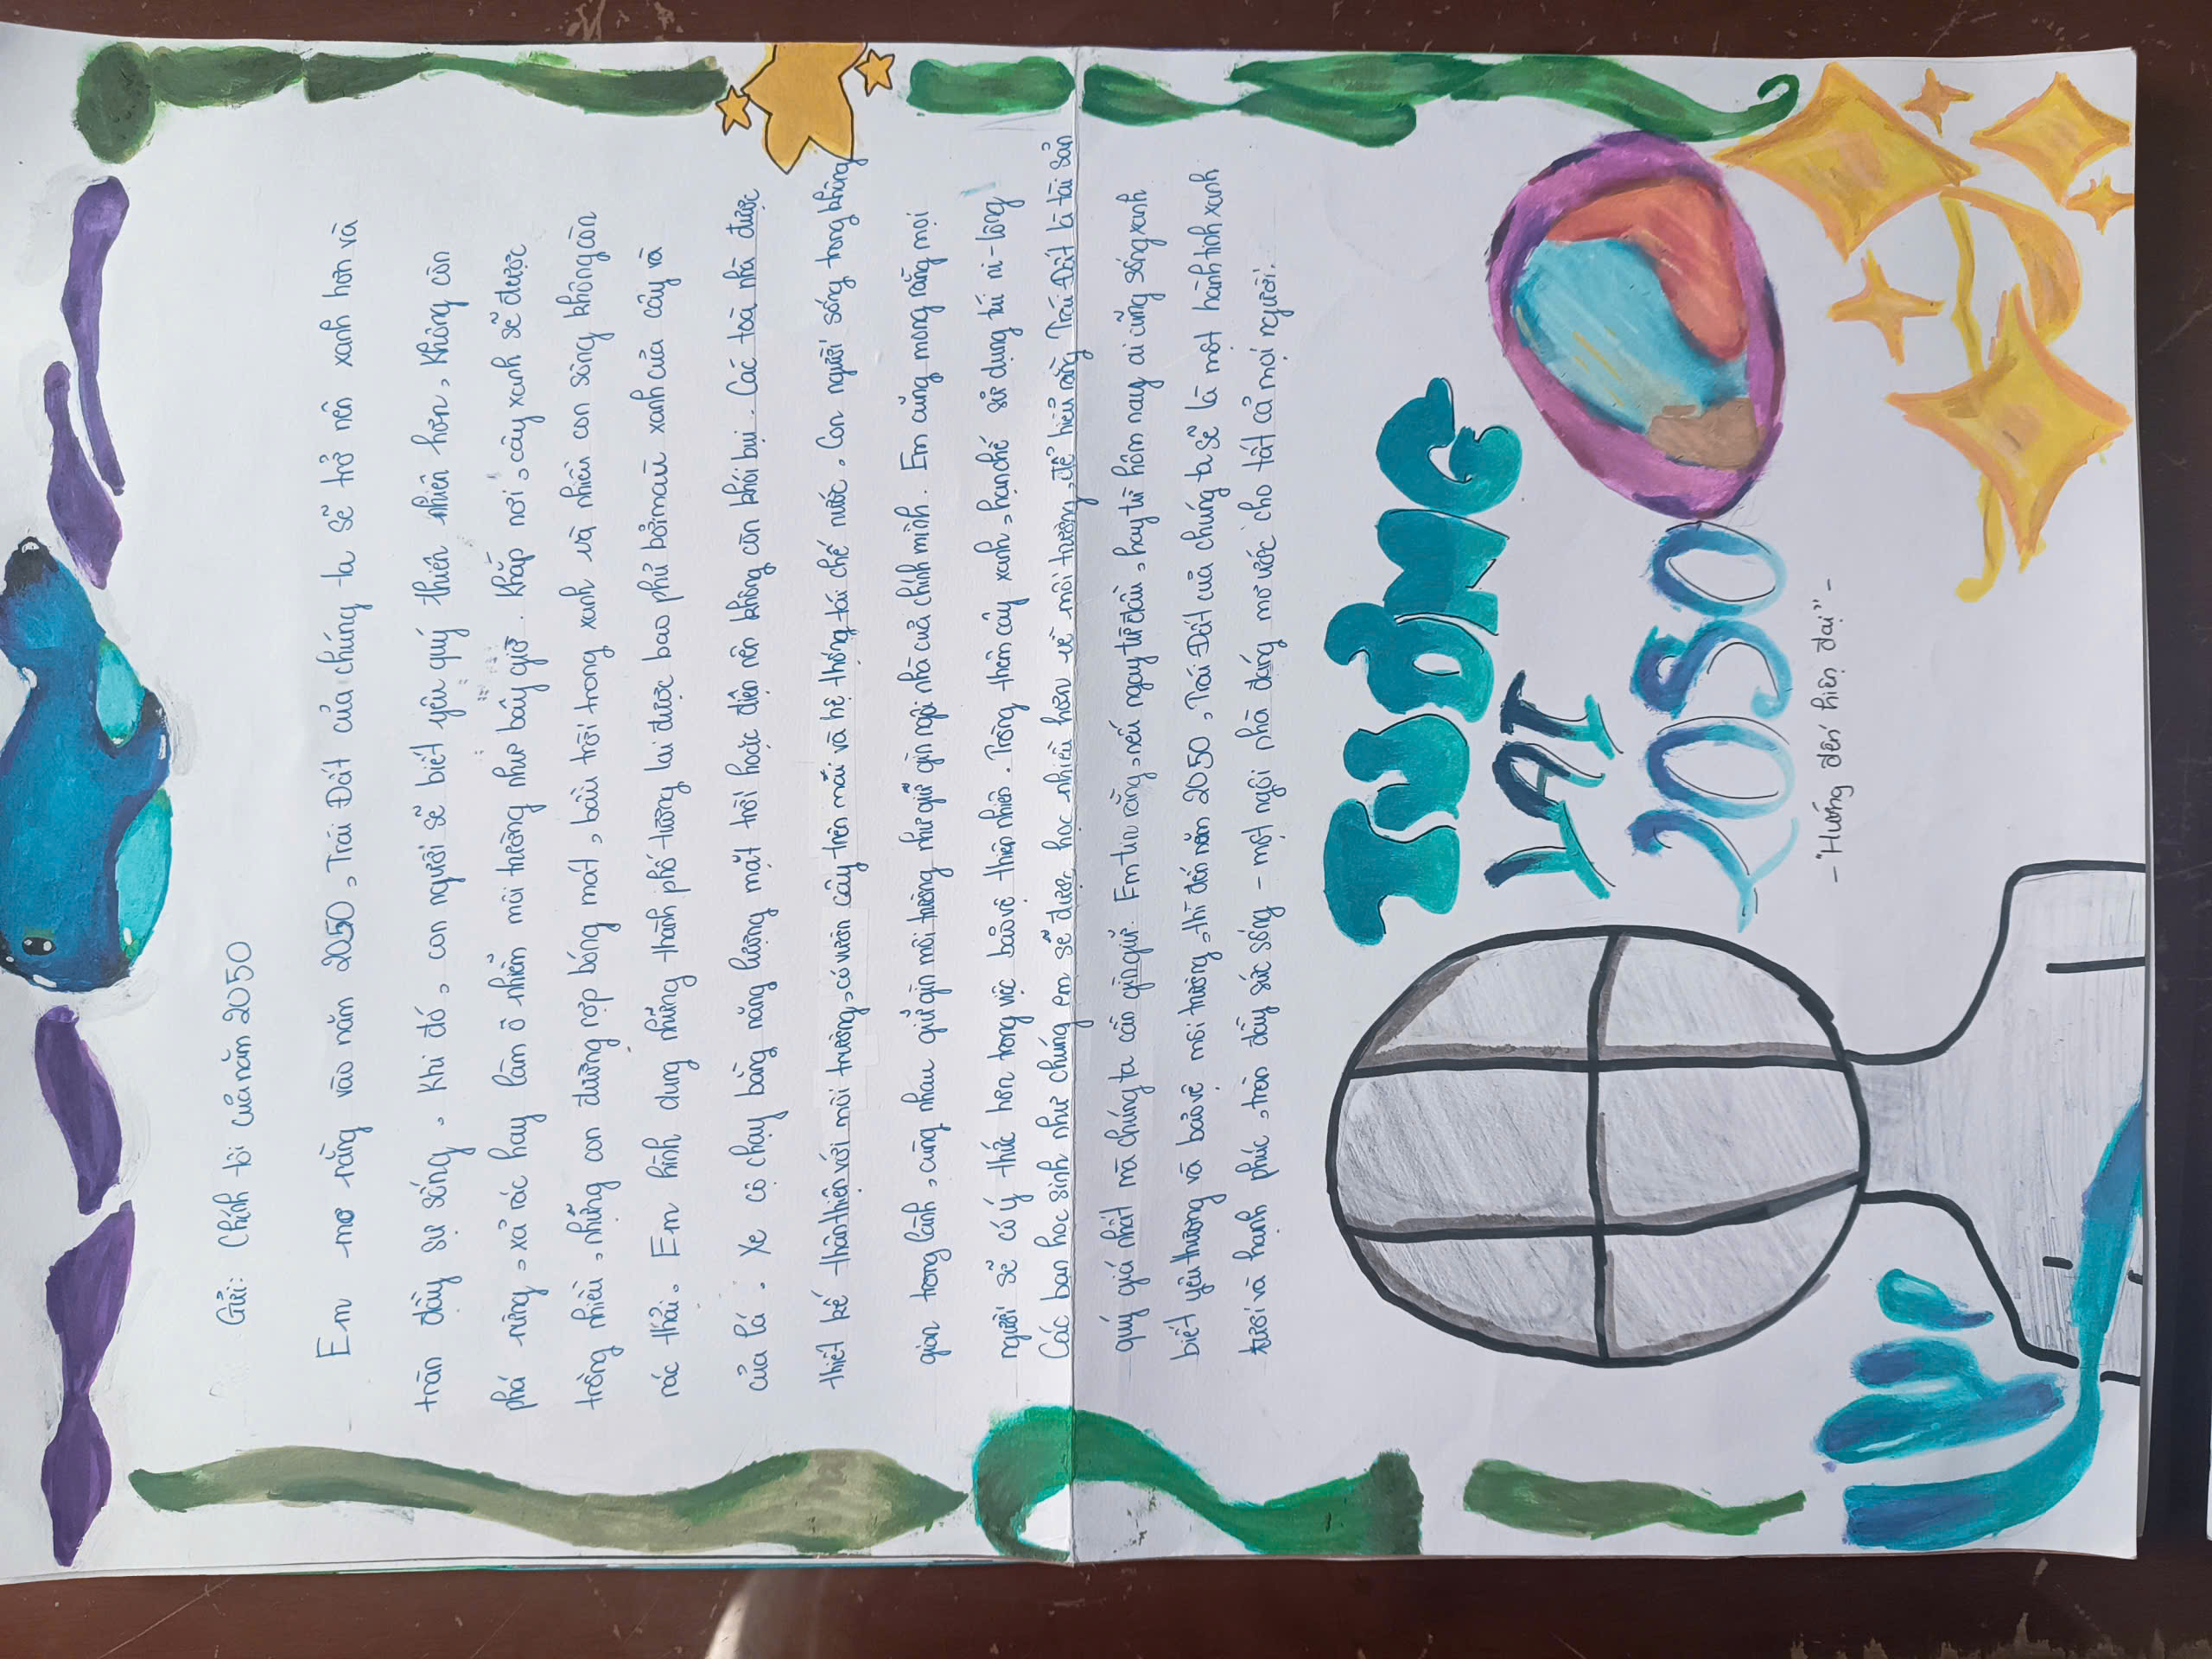 Gửi: Chính tôi của năm 2050
Em mơ rằng vào năm 2050, Trái Đất của chúng ta sẽ trở nên xanh hơn và
tràn đầy sự sống. Khi đó, con người sẽ biết yêu quý thiên nhiên hơn, không còn
phá rừng, xả rác hay làm ô nhiễm môi trường như bây giờ. Khắp nơi, cây xanh sẽ được
trồng nhiều, những con đường rợp bóng mát, bầu trời trong xanh và nhiều con sông không còn
rác thải. Em hình dung những thành phố tương lai được bao phủ bởi màu xanh của cây và
của lá. Xe cộ chạy bằng năng lượng mặt trời hoặc điện nên không còn khói bụi. Các toà nhà được
thiết kế thân thiện với môi trường, có vườn cây trên mái và hệ thống tái chế nước. Con người sống trong không
gian trong lành, cùng nhau giữ gìn môi trường như giữ gìn ngôi nhà của chính mình. Em cũng mong rằng mọi
người sẽ có ý thức hơn trong việc bảo vệ thiên nhiên. Trồng thêm cây xanh, hạn chế sử dụng túi ni-lông!
Các bạn học sinh như chúng em sẽ được học nhiều hơn về môi trường, để hiểu rằng Trái Đất là tài sản
quý giá nhất mà chúng ta cần gìn giữ. Em tin rằng, nếu ngay từ đầu, hay từ hôm nay ai cũng sống xanh
biết yêu thương và bảo vệ môi trường, thì đến năm 2050, Trái Đất của chúng ta sẽ là một hành tinh xanh
tươi và hạnh phúc, tràn đầy sức sống - một ngôi nhà đáng mơ ước cho tất cả mọi người.
TƯƠNG
LAI
2050
- "Hướng đến hiện đại" -